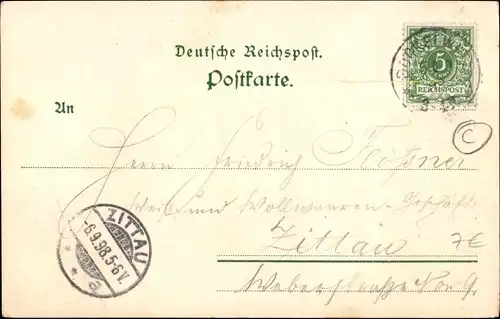 Deutsche Reichspost.
Postkarte.
5
REICHSPOST
An
Herrn Friedrich
Weiß und Wollwaaren-Geschäft
Zittau
Weberstraße No 9.
ZITTAU
-6.9.98.5-6V.
* *
a
C
7€